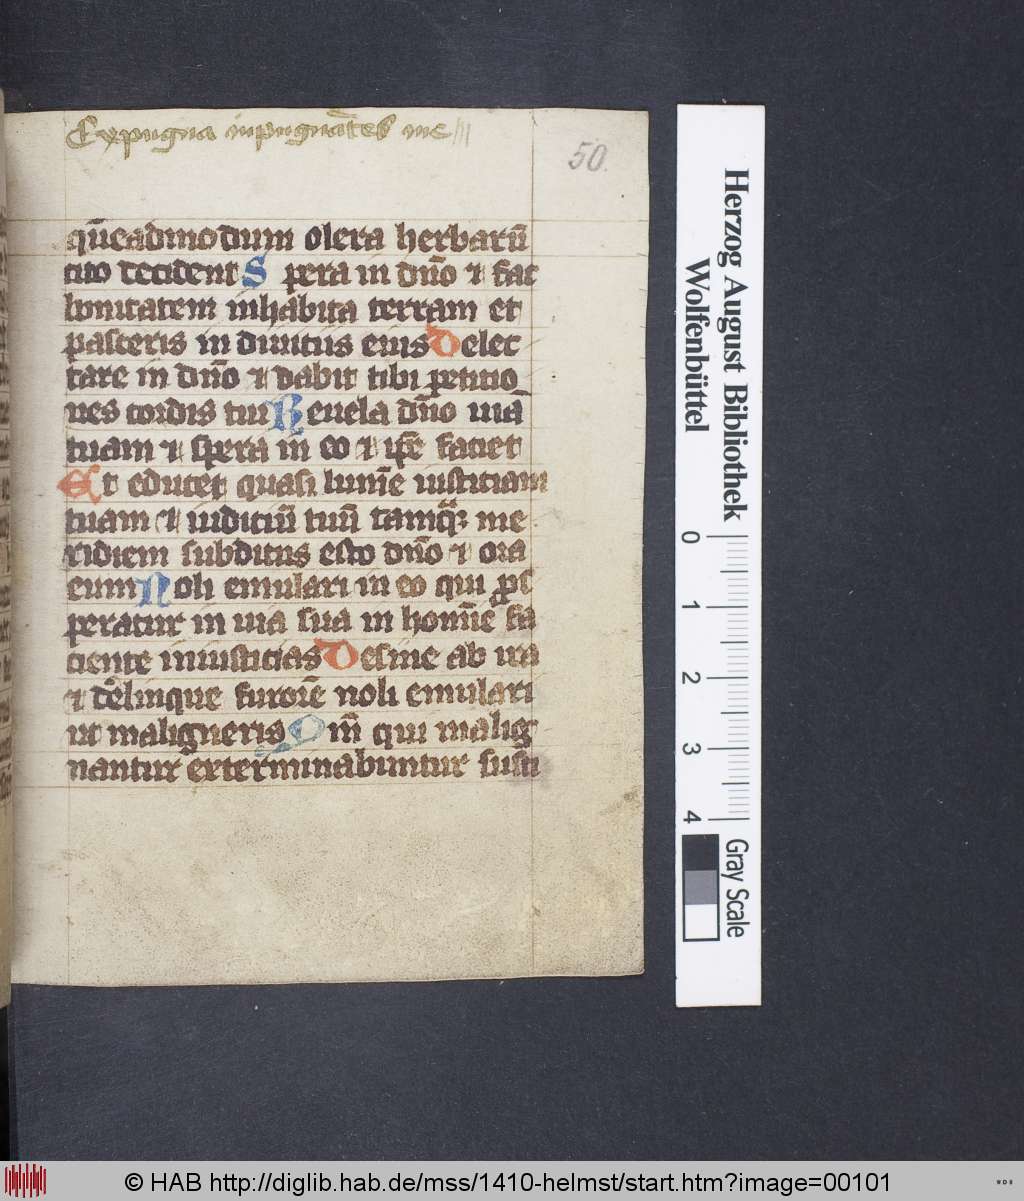 Expugna inpugnātes me
50.
qūeadmodum olera herbarū
cito decident Spera in dn̄o ⁊ fac
bonitatem inhabita terram et
pasceris in diuitiis eius Delec
tare in dn̄o ⁊ dabit tibi petitio
nes cordis tui Reuela dn̄o uiā
tuam ⁊ spera in eo ⁊ ip̄e faciet
Et educet quasi lumē iusticiam
tuam ⁊ iudiciū tuū tamqꝫ me
ridiem subditus esto dn̄o ⁊ ora
eum Noli emulari in eo qui ꝓs
peratur in uia sua in homīe fa
ciente iniusticias Desine ab ira
⁊ derelinque furorē noli emulari
ut maligneris Qm̄ qui malig
nantur exterminabuntur susti
Herzog August Bibliothek
Wolfenbüttel
0 1 2 3 4
Gray Scale
© HAB http://diglib.hab.de/mss/1410-helmst/start.htm?image=00101